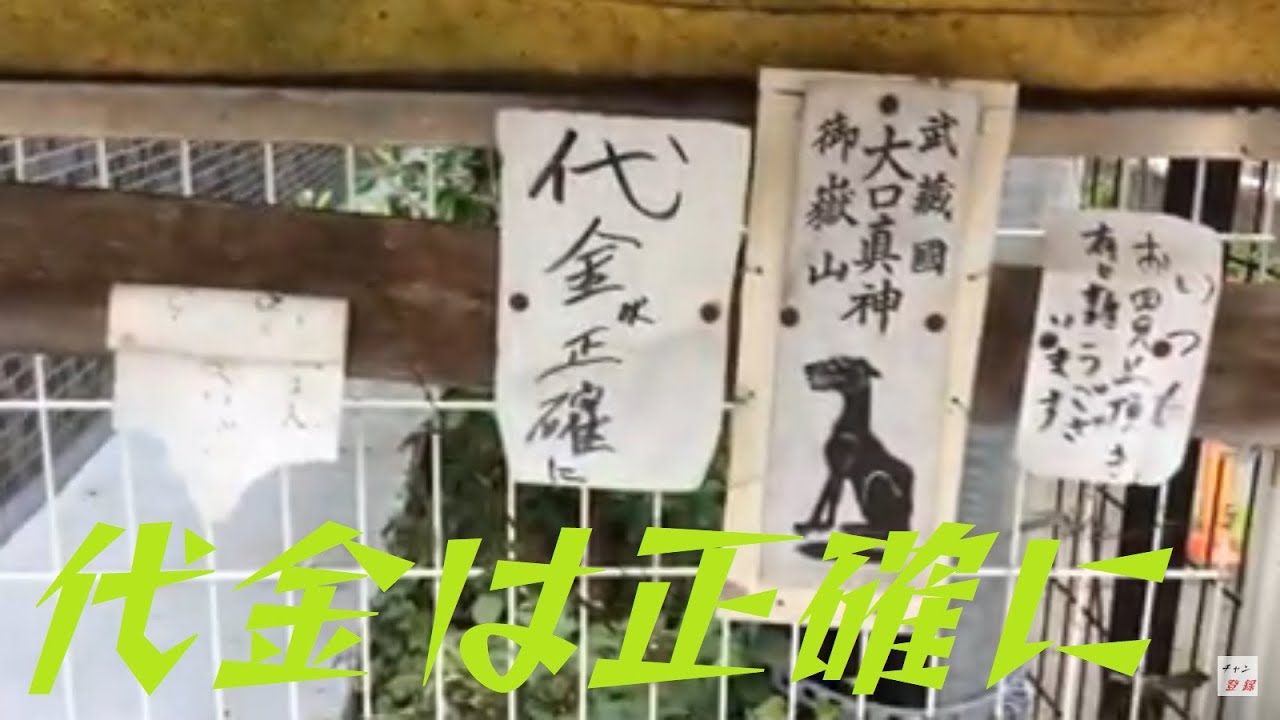 代金は正確に
武蔵國
大口真神
御嶽山
いつも
お買上頂き
有り難うござ
います
代金は正確に
チャン
登録